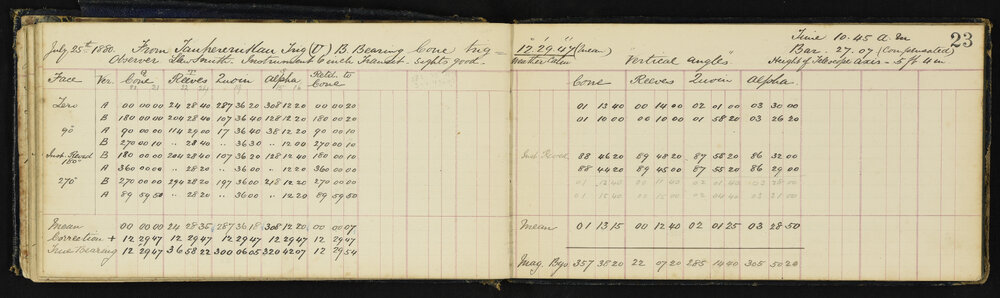 July 25th 1880. From Tauhererutau Trig (U) B Bearing Cone trig = 12. 29. 47 (mean) Time 10.45 A.M 23
Observer Lawsmith. Instrument 6 inch Transit. sights good. Weather Calm Bar. 27.07 (Compensated)
Vertical Angles. Height of Telescope Axis - 5 ft 4 in
Face Ver. Cone Reeves Quoin Alpha Retd. to Cone Cone Reeves Quoin Alpha
Zero A 00 00 00 24 28 40 287 36 20 308 12 20 00 00 20 01 13 40 00 14 00 02 01 00 03 30 00
B 180 00 00 204 28 40 107 36 40 128 12 20 180 00 20 01 10 00 00 10 00 01 58 20 03 26 20
90 A 90 00 00 114 29 00 17 36 40 38 12 20 90 00 10
B 270 00 10 " 28 40 " 36 30 " 12 00 270 00 10
Inst. Revsd 180° B 180 00 00 204 28 40 107 36 20 128 12 40 180 00 10 Inst Revsd. 88 46 20 89 48 20 87 58 20 86 32 00
A 360 00 00 " 28 20 " 36 00 " 12 20 360 00 00 88 44 20 89 45 00 87 55 20 86 29 00
270° B 270 00 00 294 28 20 197 36 00 218 12 20 270 00 00 01 13 40 00 11 40 02 01 40 03 28 00
A 89 59 50 " 28 20 " 36 00 " 12 20 89 59 50 01 15 40 00 15 00 02 04 40 03 31 00
Mean 00 00 00 24 28 35 287 36 18 308 12 20 00 00 07 Mean 01 13 15 00 12 40 02 01 25 03 28 50
Correction + 12 29 47 12 29 47 12 29 47 12 29 47 12 29 47
True Bearing 12 29 47 36 58 22 300 06 05 320 42 07 12 29 54
Mag. Bgs 357 38 20 22 07 20 285 14 40 305 50 20